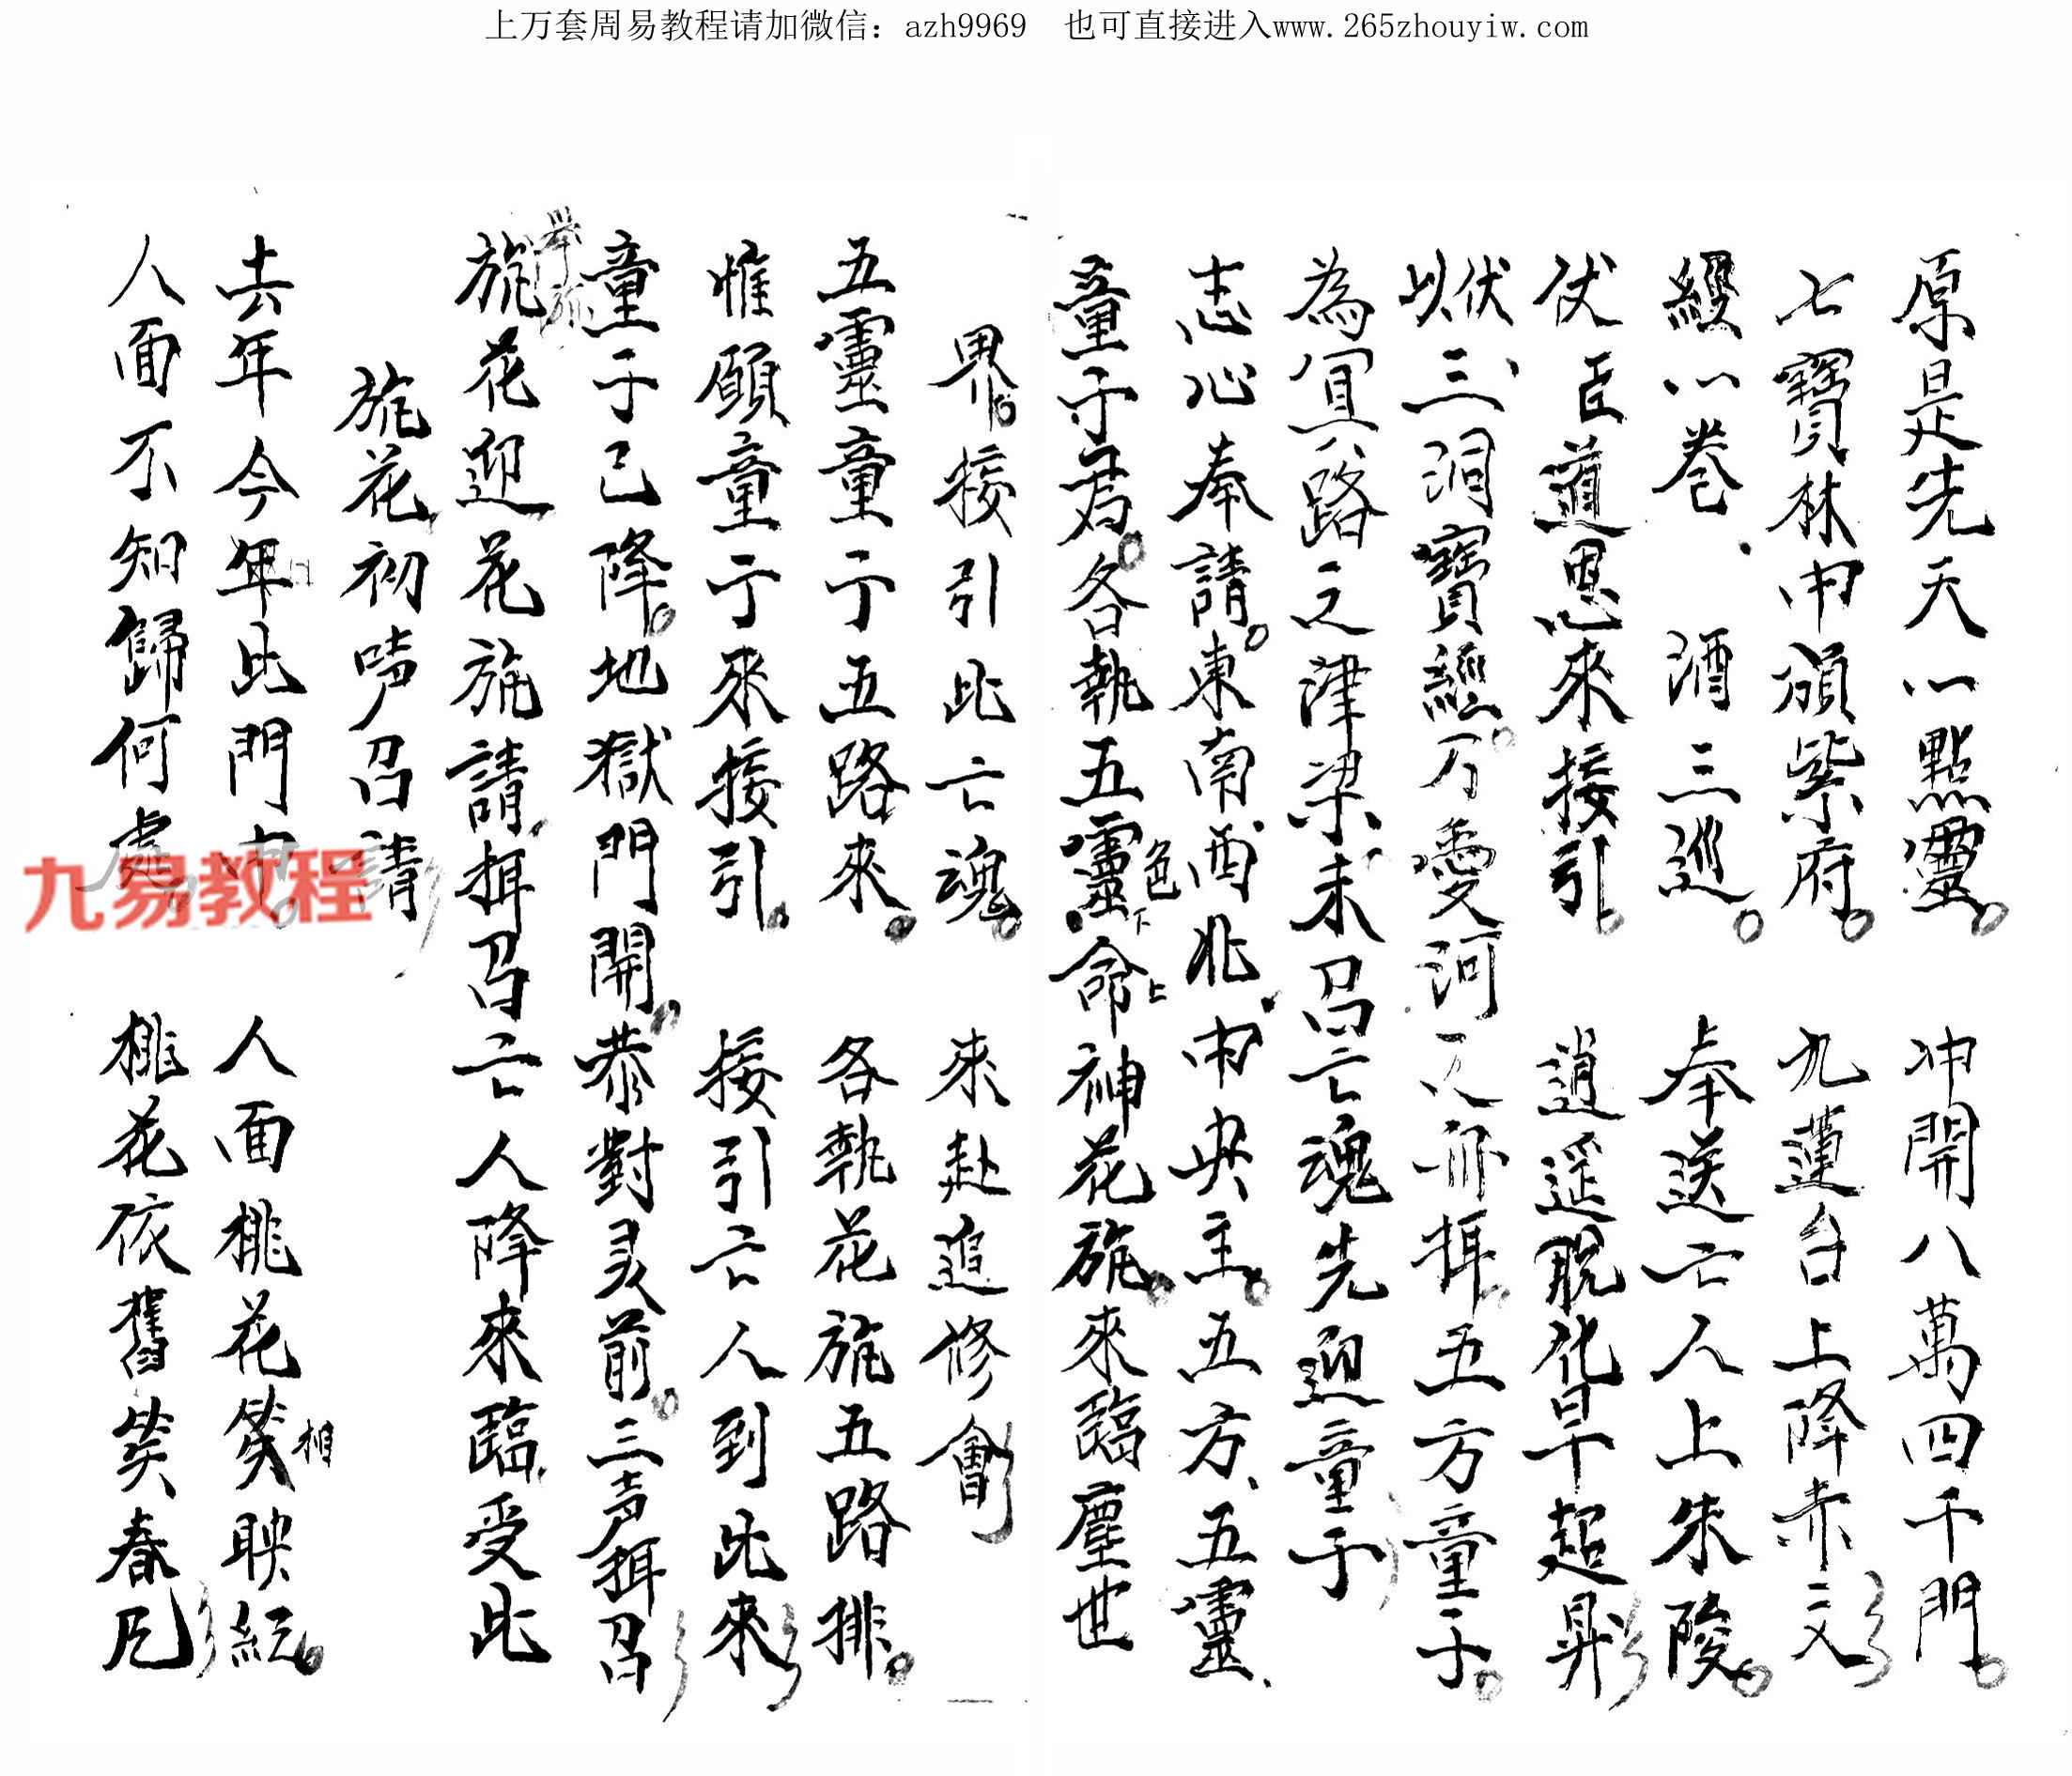 上万套周易教程请加微信：azh9969 也可直接进入www.265zhouyiw.com
原是先天一點靈 冲開八萬四千門
七寶林中頒紫府 九蓮台上降赤文
經一卷 酒三巡 奉送亡人上朱陵
伏臣道恩來接引 逍遥脱化早超昇
伏以三洞寶經万爱河 之 揖五方童子
為冥路之津梁未召亡魂先迎童子
志心奉請東南西北中央主五方五靈
童子君各執五靈色下命上神花旛來臨塵世
界接引此亡魂 來赴追修會
五靈童子五路來 各執花旛五路排
惟願童子來接引 接引亡人到此來
童子已降地獄門開恭對灵前三声揖召
旛花迎花旛請揖召亡人降來臨受此
旛花初啨召請
去年今年此門中 人面桃花笑相映紅
人面不知歸何處 桃花依舊笑春风
九易教程